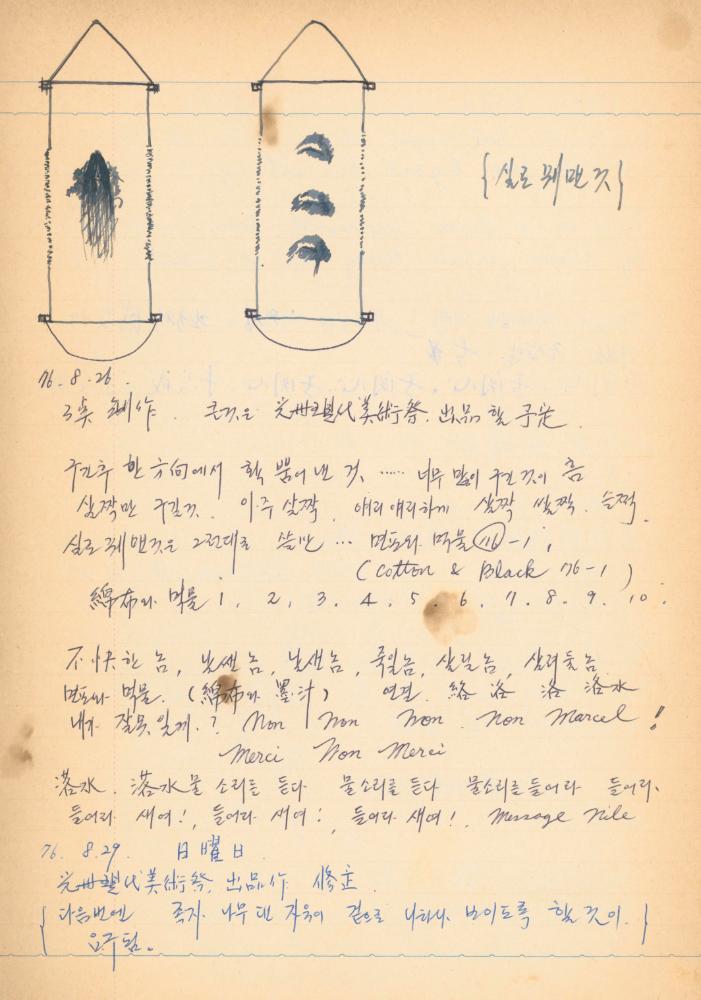 {실로 꿰맨 것}
76. 8. 26.
3점 制作. 큰것은 光州現代美術祭. 出品할 予定.
한 方向에서 확 뿜어낸 것, ······ 너무 많이 것이 흠
살짝만 아주 살짝. 얘리얘리하게 살짝 쌀짝. 슬쩍.
실로 꿰맨것은 그런대로 쓸만 ··· 면포와 먹물 76-1,
(Cotton & Black 76-1)
綿布와 먹물 1, 2, 3. 4. 5. 6. 7. 8. 9. 10.
不快한 놈, 날쌘놈, 죽일놈, 살릴놈,
면포와 먹물. (綿布와 墨汁) 연결. 絡 洛 洛 洛水
내가 잘못일게.? Non Non Non. Non Marcel!
Merci Non Merci
洛水. 洛水물 소리를 듣다 물소리를 듣다 물소리를 들어라 들어라.
들어라 새여!, 들어라 새여!, 들어라 새여!. Message Nile
76. 8. 29. 日曜日.
光州現代美術祭. 出品作 修正.
{다음번엔 족자 나무 댄 자욱이 겉으로 나타나 보이도록 할 것이.
요구됨.}